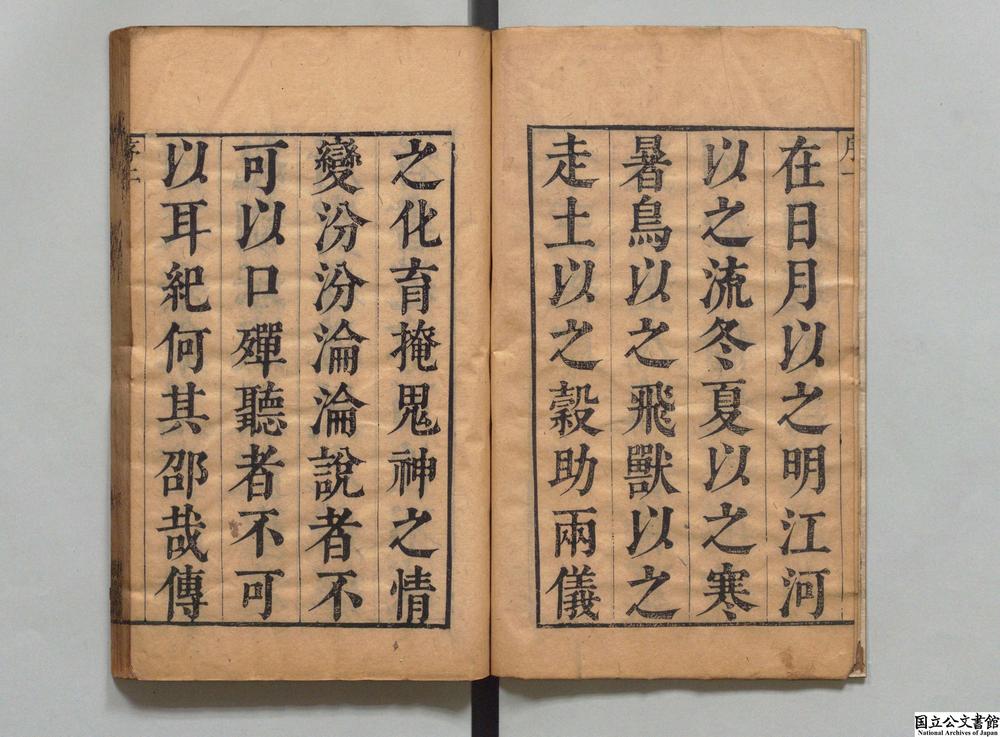 序一
在日月以之明江河
以之流冬夏以之寒
暑鳥以之飛獸以之
走土以之穀助兩儀
之化育掩鬼神之情
變汾汾淪淪說者不
可以口殫聽者不可
以耳紀何其邵哉傳
序二
国立公文書館
National Archives of Japan